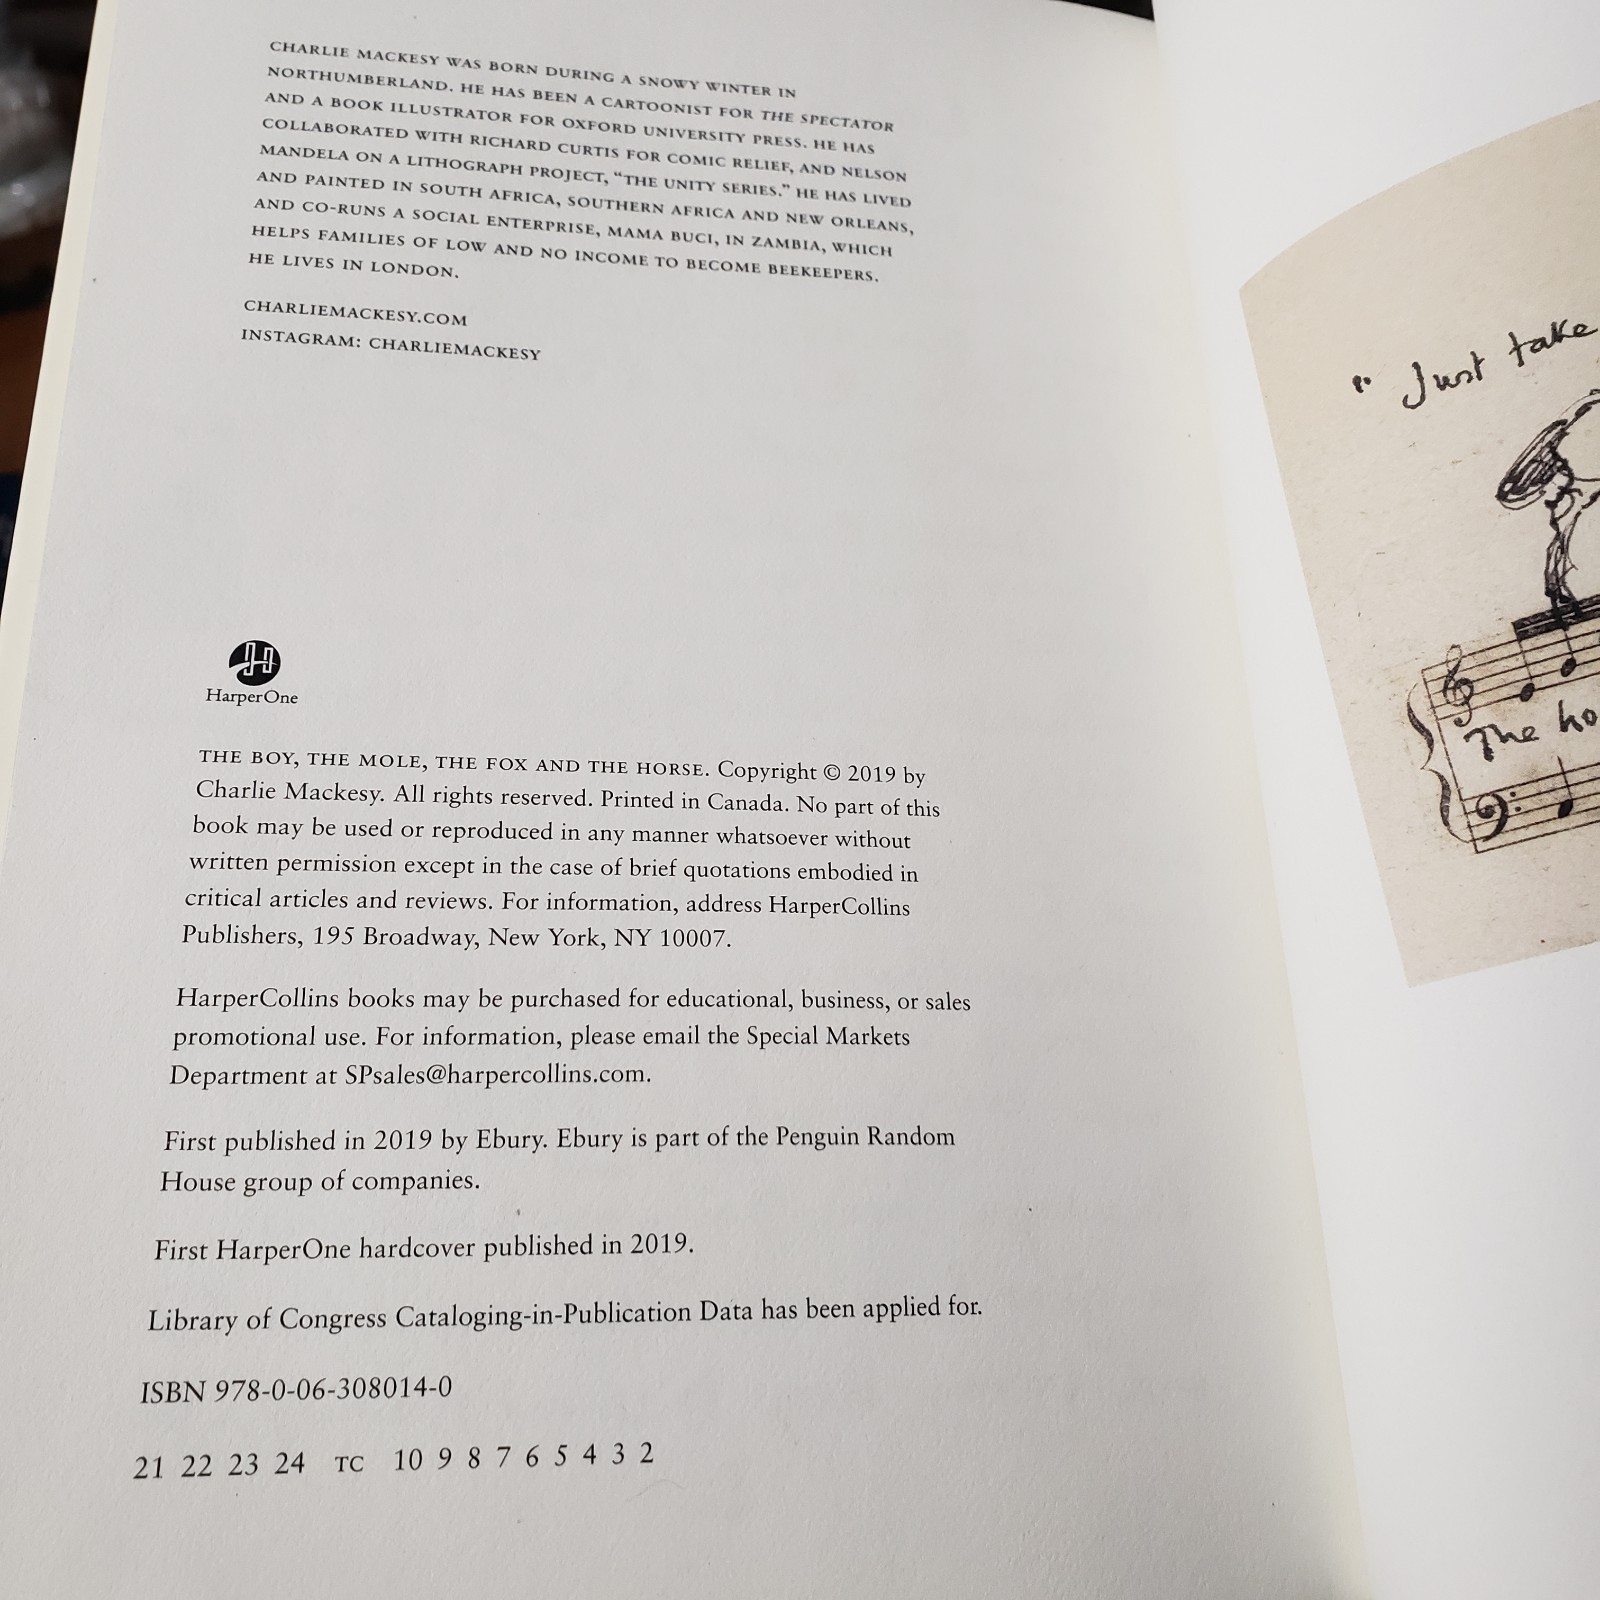 CHARLIE MACKESY WAS BORN DURING A SNOWY WINTER IN
NORTHUMBERLAND. HE HAS BEEN A CARTOONIST FOR THE SPECTATOR
AND A BOOK ILLUSTRATOR FOR OXFORD UNIVERSITY PRESS. HE HAS
COLLABORATED WITH RICHARD CURTIS FOR COMIC RELIEF, AND NELSON
MANDELA ON A LITHOGRAPH PROJECT, “THE UNITY SERIES.” HE HAS LIVED
AND PAINTED IN SOUTH AFRICA, SOUTHERN AFRICA AND NEW ORLEANS,
AND CO-RUNS A SOCIAL ENTERPRISE, MAMA BUCI, IN ZAMBIA, WHICH
HELPS FAMILIES OF LOW AND NO INCOME TO BECOME BEEKEEPERS.
HE LIVES IN LONDON.
CHARLIEMACKESY.COM
INSTAGRAM: CHARLIEMACKESY
HarperOne
THE BOY, THE MOLE, THE FOX AND THE HORSE. Copyright © 2019 by
Charlie Mackesy. All rights reserved. Printed in Canada. No part of this
book may be used or reproduced in any manner whatsoever without
written permission except in the case of brief quotations embodied in
critical articles and reviews. For information, address HarperCollins
Publishers, 195 Broadway, New York, NY 10007.
HarperCollins books may be purchased for educational, business, or sales
promotional use. For information, please email the Special Markets
Department at SPsales@harpercollins.com.
First published in 2019 by Ebury. Ebury is part of the Penguin Random
House group of companies.
First HarperOne hardcover published in 2019.
Library of Congress Cataloging-in-Publication Data has been applied for.
ISBN 978-0-06-308014-0
21 22 23 24 TC 10 9 8 7 6 5 4 3 2
" Just take
The ho